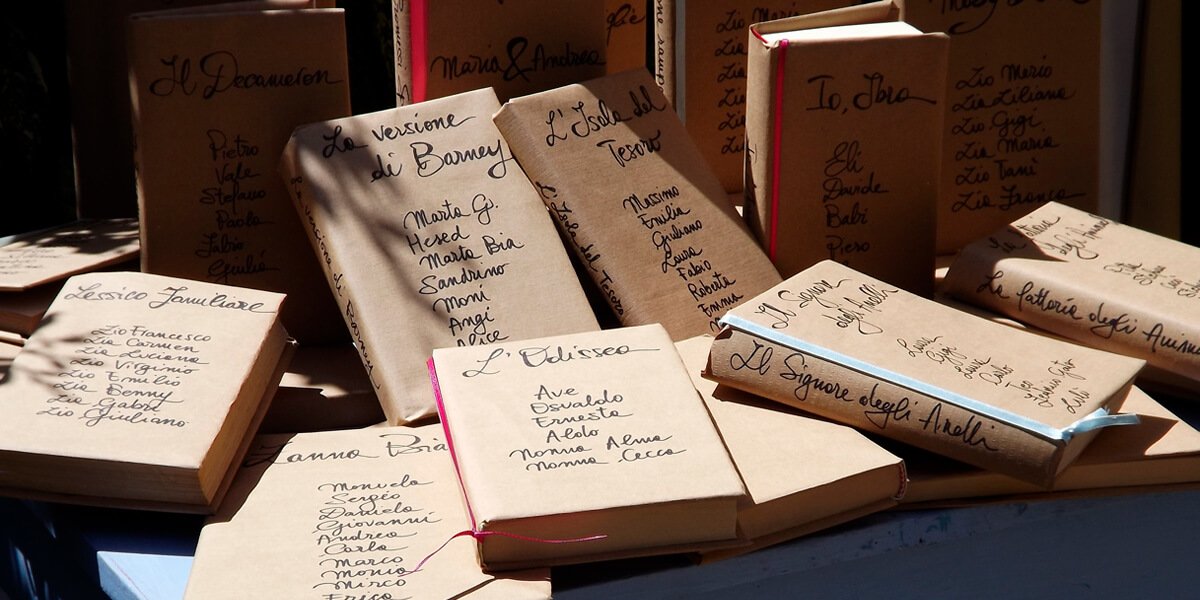 Il Decameron
Pietro
Vale
Stefano
Paola
Fabio
Giulia
Maria & Andrea
La versione
di Barney
Marta G.
Hesed
Marta Bia
Sandrino
Moni
Angi
Alice
La versione di Barney
L'Isola del
Tesoro
Massimo
Emilia
Giuliano
Laura
Fabio
Roberta
Emma
L'Isola del Tesoro
Zio
Zio
Zia
Zio
Zia
Io, Ibra
Eli
Davide
Babi
Piero
Zio Mario
Zia Liliana
Zio Gigi
Zia Maria
Zio Tanì
Zia Franca
degli Animali
La fattoria degli Anima
Il Signore
degli Anelli
Luca
Gigi
Luisa
Carlo
Il Signore degli Anelli
Lessico Famigliare
Zio Francesco
Zia Carmen
Zia Luciana
Zio Virginio
Zio Emilio
Zia Denny
Zia Gabri
Zio Giuliano
L'Odissea
Ave
Osvaldo
Ernesta
Aldo
Nonna Alma
Nonna Cecca
Manuela
Sergio
Daniela
Giovanni
Andrea
Carla
Marco
Monia
Mirco
Erica